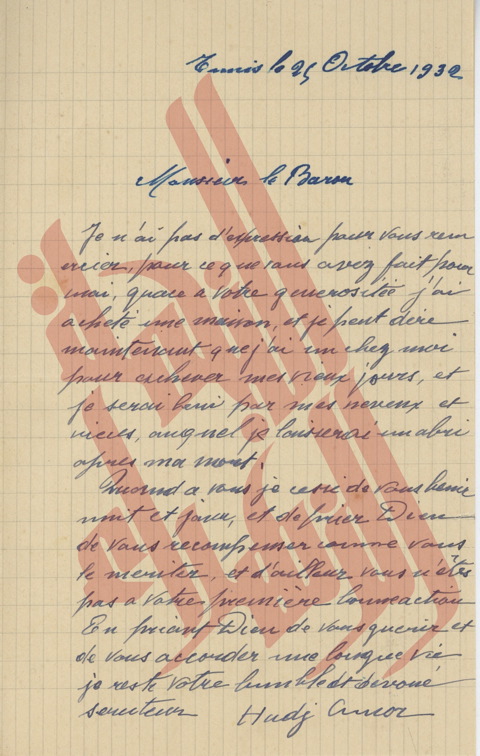 Tunis le 25 Octobre 1932
Monsieur le Baron
Je n'ai pas d'expression pour vous rem
ercier, pour ce que vous avez fait pour
moi, grace a votre generositée j'ai
acheté une maison, et je peut dire
maintenant que j'ai un chez moi
pour achever mes vieux jours, et
je serai beni par mes neveux et
nieces, auquel je laisserai un abri
apres ma mort.
Quand a vous je cesse de vous benir
nuit et jour, et de prier Dieu
de vous recompenser comme vous
le meriter, et d'ailleur vous n'êtes
pas a votre première bonneaction
En priant Dieu de vous guerir et
de vous accorder une longue vie
je reste votre humble et devoué
serviteur Hadj Amor